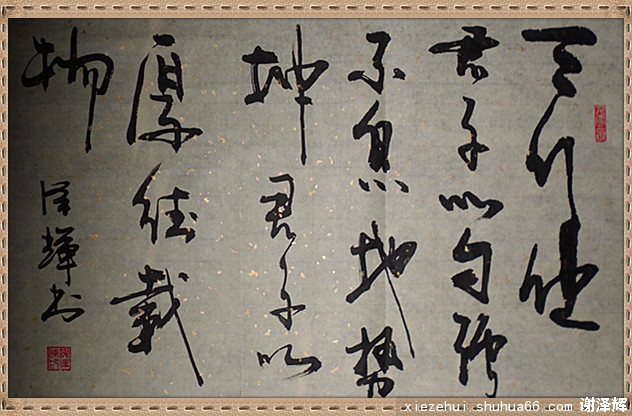 天行健
君子以自强
不息地势
坤君子以
厚德載
物
泽輝书
xiezehui.shuhua66.com 谢泽辉